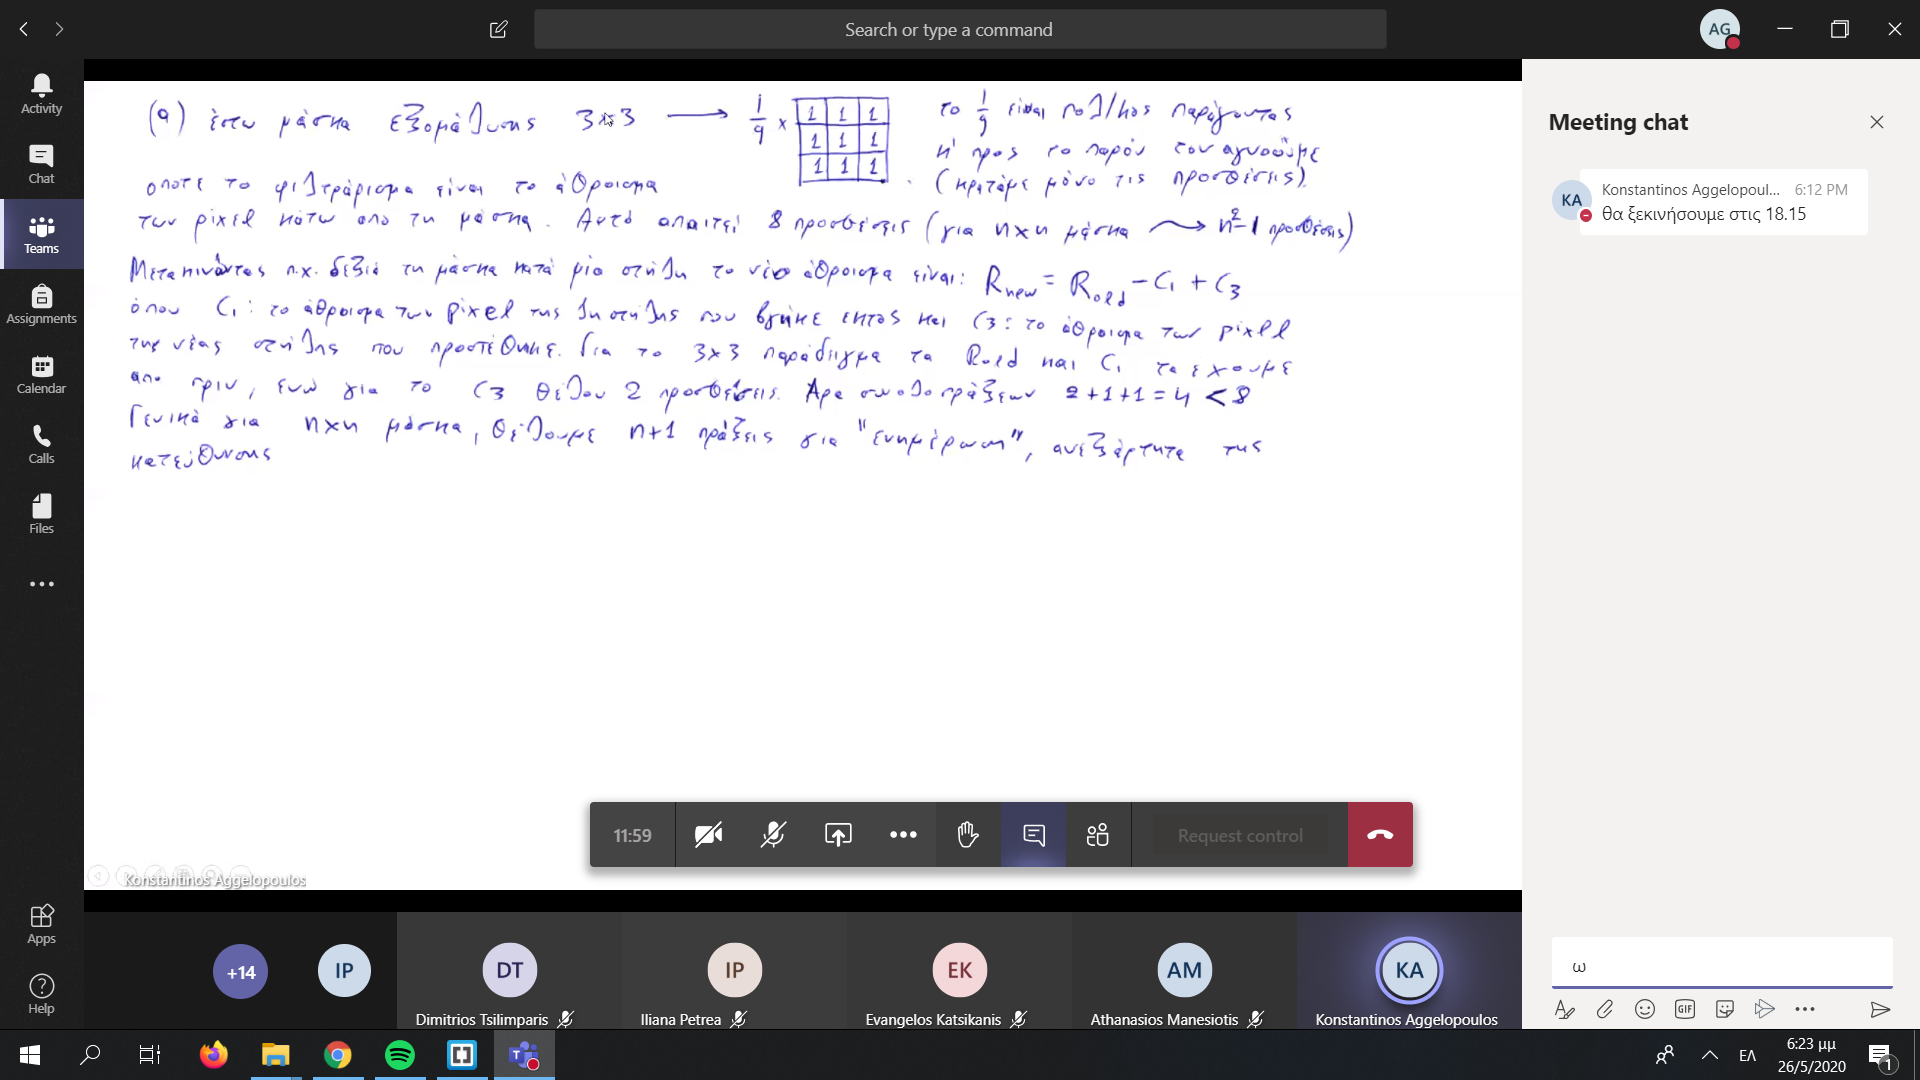 Search or type a command
AG
Activity
Chat
Teams
Assignments
Calendar
Calls
Files
Apps
Help
(a) έστω μάσκα εξομάλυνσης 3x3 → 1/9 x
1 1 1
1 1 1
1 1 1
το 1/9 είναι πολ/κος παράγοντας
κ' προς το παρόν τον αγνοούμε
(κρατάμε μόνο τις προσθέσεις).
οποτε το φιλτράρισμα είναι το άθροισμα
των pixel κάτω απο τη μάσκα. Αυτό απαιτεί 8 προσθέσεις (για nxn μάσκα → n²-1 προσθέσεις)
Μετακινώντας π.χ. δεξιά τη μάσκα κατά μία στήλη το νέο άθροισμα είναι: Rnew = Rold - C1 + C3
όπου C1: το άθροισμα των pixel της 1η στήλης που βγήκε εκτός και C3: το άθροισμα των pixel
της νέας στήλης που προστέθηκε. Για το 3x3 παράδειγμα τα Rold και C1 τα έχουμε
απο πριν, ενώ για το C3 θέλου 2 προσθέσεις. Άρα συνολο πράξεων 2+1+1=4 < 8
Γενικά για nxn μάσκα, θέλουμε n+1 πράξεις για "ενημέρωση", ανεξάρτητα της
κατεύθυνσης
11:59
Request control
Konstantinos Aggelopoulos
+14
IP
DT
IP
EK
AM
KA
Dimitrios Tsilimparis
Iliana Petrea
Evangelos Katsikanis
Athanasios Manesiotis
Konstantinos Aggelopoulos
Meeting chat
KA
Konstantinos Aggelopoul... 6:12 PM
θα ξεκινήσουμε στις 18.15
ω
GIF
ΕΛ
6:23 μμ
26/5/2020
1